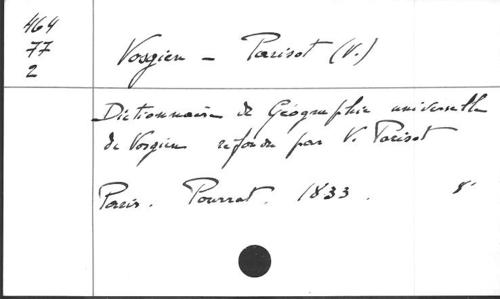 464
77
2
Vosgien - Parisot (V.)
Dictionnaire de Géographie universelle
de Vosgien refondu par V. Parisot
Paris. Pourrat. 1833. 8°